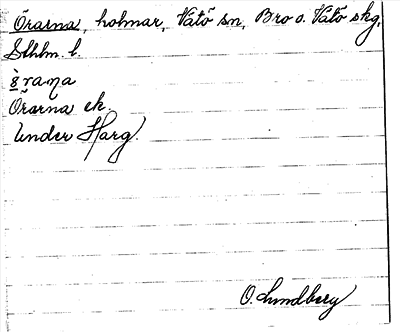 Örarna, holmar, Vätö sn, Bro o. Vätö skg,
Sthlm. l.
Örarna ek.
Under Harg.
O. Lundberg